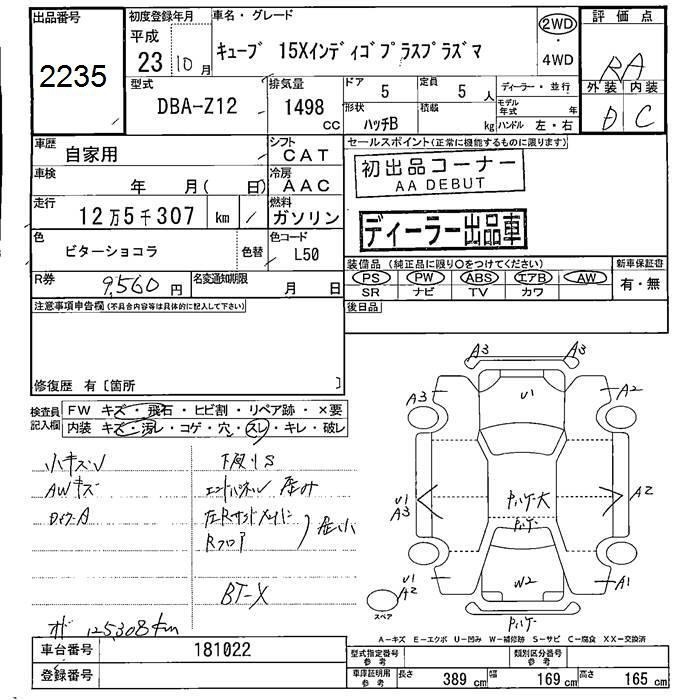 出品番号
2235
初度登録年月
平成
23 10 月
車名・グレード
キューブ 15Xインディゴプラスプラズマ
2WD
・
4WD
評価点
RA
外装 内装
D C
型式
DBA-Z12
排気量
1498
CC
ドア 5
定員 5 人
形状
ハッチB
積載
kg
ディーラー・並行
モデル年式 年
ハンドル 左・右
車歴
自家用
シフト
CAT
車検
年 月( 日)
冷房
AAC
走行
12万5千307 km
燃料
ガソリン
色
ビターショコラ
色替
色コード
L50
R券
9,560 円
名変通知期限
月 日
セールスポイント(正常に機能するものに限ります)
初出品コーナー
AA DEBUT
ディーラー出品車
装備品(純正品に限り○をつけてください)
PS PW ABS エアB AW
SR ナビ TV カワ
新車保証書
有・無
後日品
注意事項申告欄(不具合内容等は具体的に記入して下さい)
修復歴 有〔箇所 〕
検査員記入欄
FW キズ・飛石・ヒビ割・リペア跡・×要
内装 キズ・汚レ・コゲ・穴・スレ・キレ・破レ
小キズV
AWキズ
下廻りS
エンドパネル
Rフロア
BT-X
125308km
A3 A3
A3 U1 A2
U1
A3
A2
U1
A2
W2 A1
スペア
A－キズ E－エクボ U－凹み W－補修跡 S－サビ C－腐食 XX－交換済
車台番号 181022
登録番号
型式指定番号
参考
類別区分番号
参考
車庫証明用
参考
長さ 389 cm 幅 169 cm 高さ 165 cm